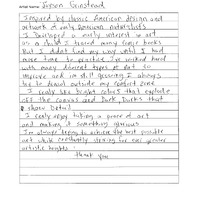 Artist Name: Jayson Grinstead
Inspired by classic American design and
artwork of early American naturalists
I Developed a early interest in art
as a child I traced many comic books
But I didnt find my way until I had
more time to practice. I've worked hard
with many different types of art to
improve and im still growing I always
try to create outside my comfort zone
I realy like bright colors that explode
off the canvas and Dark, Darks that
show Detail
I realy enjoy taking a piece of art
and making it something glorious
I'm always trying to achieve the best possible
art while constantly striving for even greater
artistic heights.
Thank you